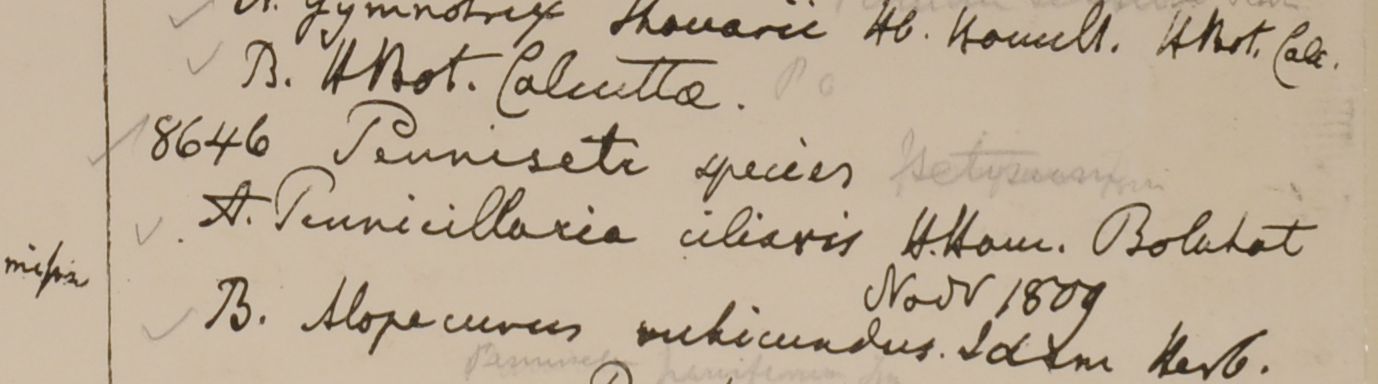 A. Gymnotrix Thouarii Hb. Hamilt. HBot. Calc.
B. HBot. Calcutta.
8646 Penniseti species setosum
A. Penicillaria ciliaris H.Ham. Bolahat
Novr 1809
missn
B. Alopecurus rubicundus. Idem Herb.
Pennisetum